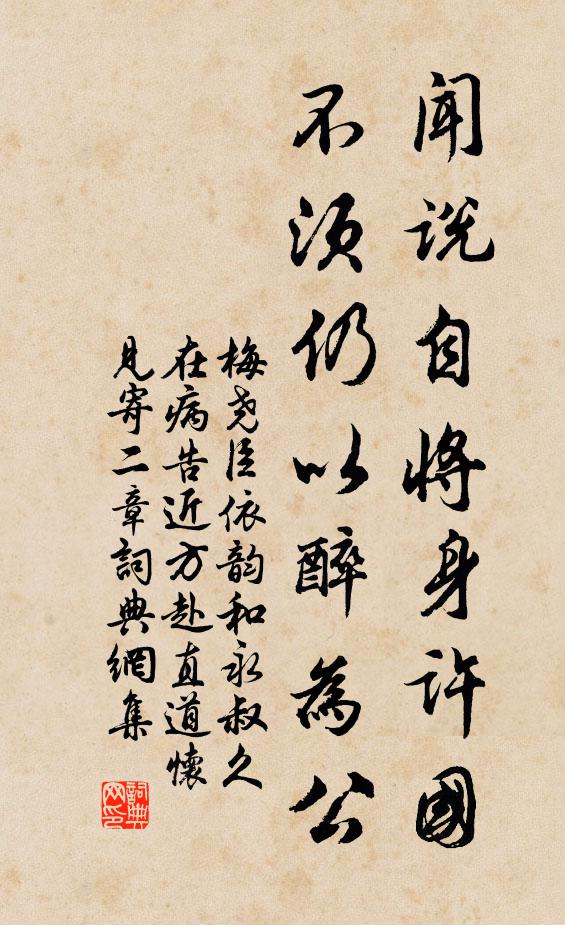 闻说自将身许國
不须仍以醉為公
梅尧臣依韵和永叔久
在病告近方赴直道懐
見寄二章詞典網集
詞典
网印